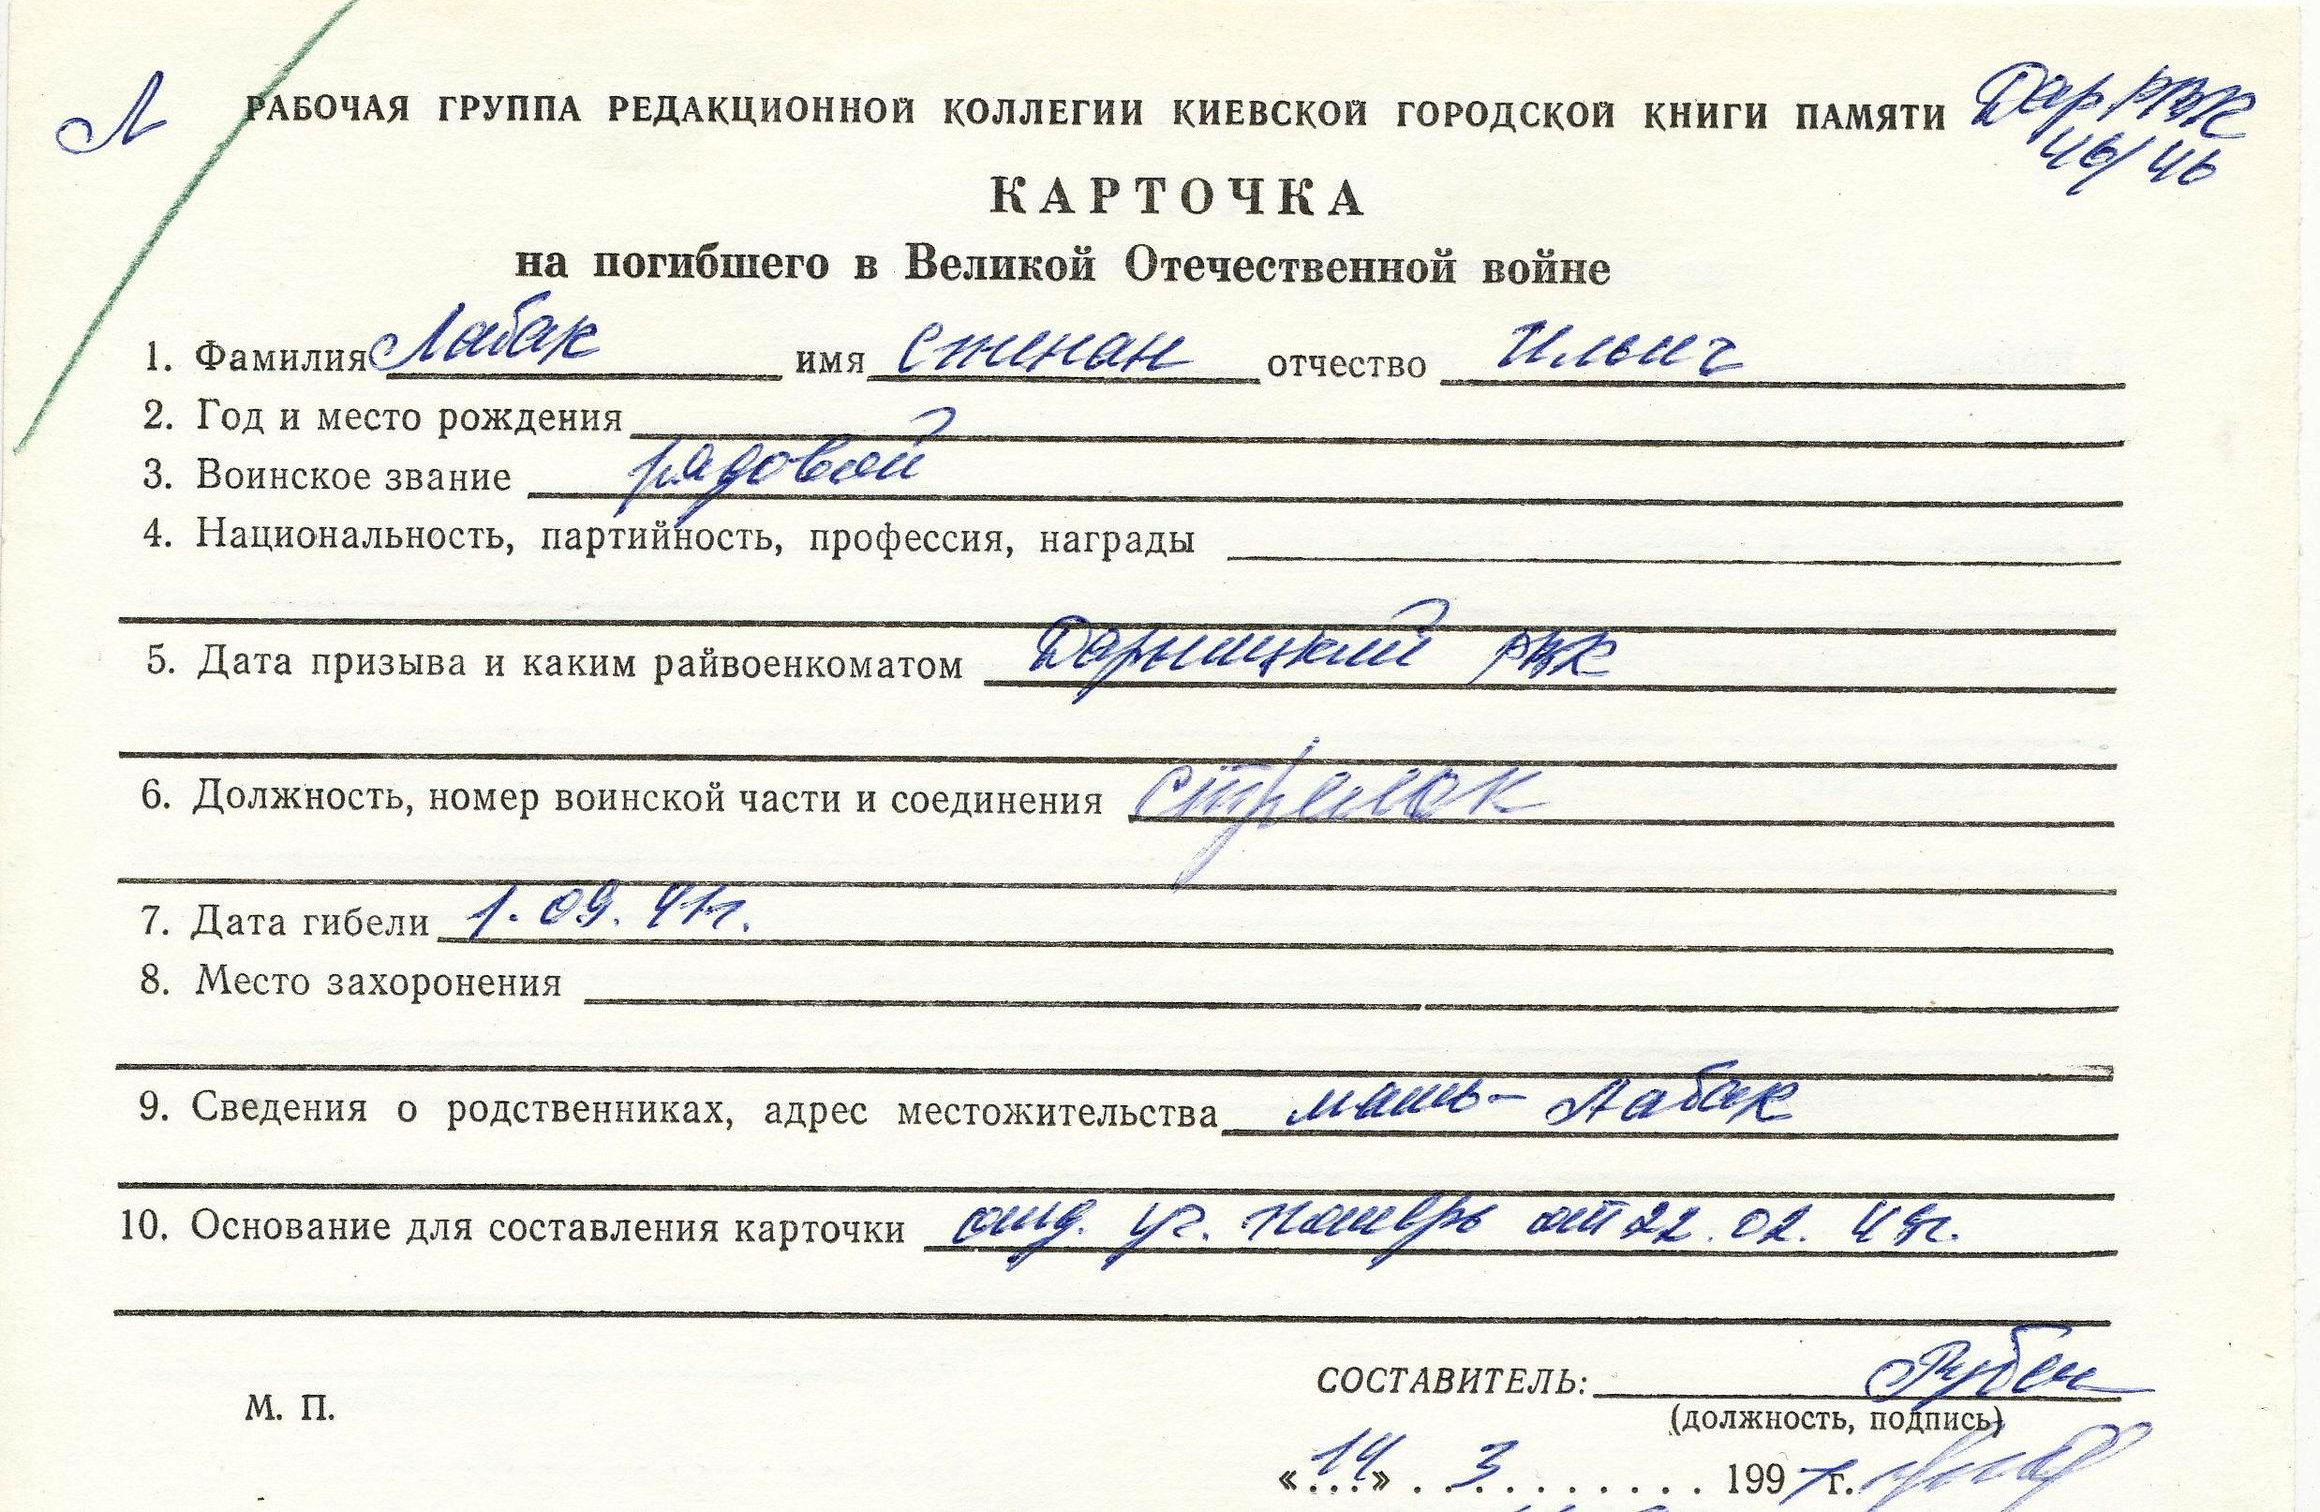 Л РАБОЧАЯ ГРУППА РЕДАКЦИОННОЙ КОЛЛЕГИИ КИЕВСКОЙ ГОРОДСКОЙ КНИГИ ПАМЯТИ Дар РВК
46/46
КАРТОЧКА
на погибшего в Великой Отечественной войне
1. Фамилия Лабак имя Степан отчество Ильич
2. Год и место рождения
3. Воинское звание рядовой
4. Национальность, партийность, профессия, награды
5. Дата призыва и каким райвоенкоматом Дарницкий РВК
6. Должность, номер воинской части и соединения стрелок
7. Дата гибели 1.09.41г.
8. Место захоронения
9. Сведения о родственниках, адрес местожительства мать- Лабак
10. Основание для составления карточки потерь от 22.02.
СОСТАВИТЕЛЬ:
М. П.
(должность, подпись)
«14» 3 199 г.